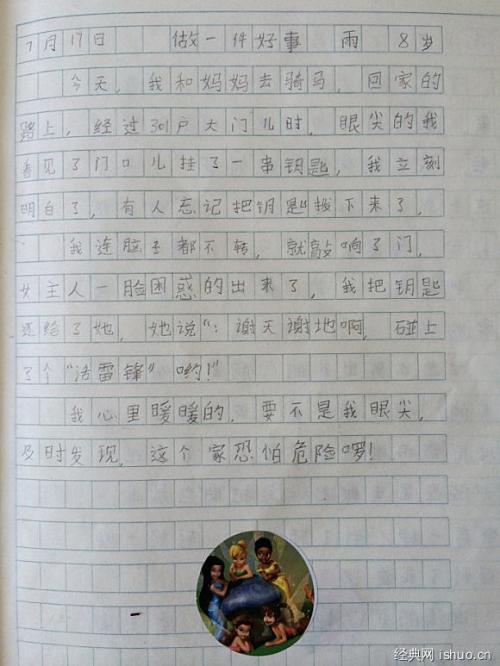 7月17日 做一件好事 雨 8岁
今天,我和妈妈去骑马,回家的
路上,经过301户大门儿时,眼尖的我
看见了门口儿挂了一串钥匙,我立刻
明白了,有人忘记把钥匙拨下来了,
我连脑子都不转,就敲响了门,
女主人一脸困惑的出来了,我把钥匙
还给了她,她说“:谢天谢地啊,碰上
了个“活雷锋”哟!”
我心里暖暖的,要不是我眼尖,
及时发现,这个家恐怕危险啰!
经典网 ishuo.cn